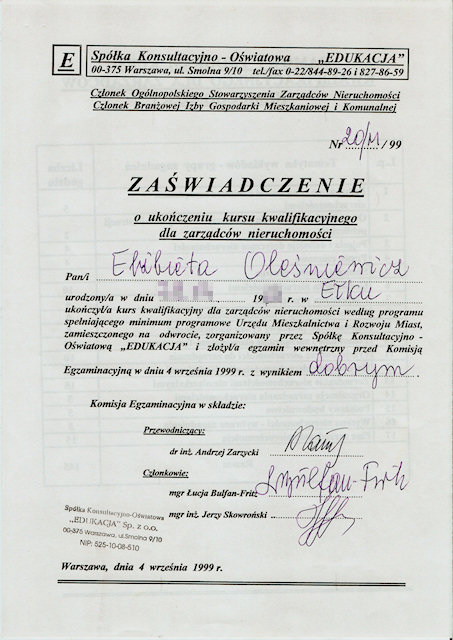 E
Spółka Konsultacyjno - Oświatowa „EDUKACJA”
00-375 Warszawa, ul. Smolna 9/10 tel./fax 0-22/844-89-26 i 827-86-59
Członek Ogólnopolskiego Stowarzyszenia Zarządców Nieruchomości
Członek Branżowej Izby Gospodarki Mieszkaniowej i Komunalnej
Nr 20/M / 99
ZAŚWIADCZENIE
o ukończeniu kursu kwalifikacyjnego
dla zarządców nieruchomości
Pan/i Elżbieta Oleśniewicz
urodzony/a w dniu 19 r. w Ełku
ukończył/a kurs kwalifikacyjny dla zarządców nieruchomości według programu
spełniającego minimum programowe Urzędu Mieszkalnictwa i Rozwoju Miast,
zamieszczonego na odwrocie, zorganizowany przez Spółkę Konsultacyjno -
Oświatową „EDUKACJA” i złożył/a egzamin wewnętrzny przed Komisją
Egzaminacyjną w dniu 4 września 1999 r. z wynikiem dobrym.
Komisja Egzaminacyjna w składzie:
Przewodniczący:
dr inż. Andrzej Zarzycki
Członkowie:
mgr Łucja Bulfan-Fritz
mgr inż. Jerzy Skowroński
Spółka Konsultacyjno-Oświatowa
„EDUKACJA” Sp. z o.o.
00-375 Warszawa, ul.Smolna 9/10
NIP: 525-10-08-510
Warszawa, dnia 4 września 1999 r.